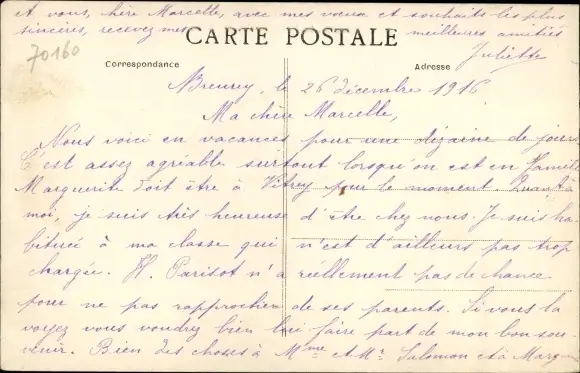 A vous, chère Marcelle, avec mes vœux et souhaits les plus
sincères, recevez mes meilleures amitiés
Juliette
70160
CARTE POSTALE
Correspondance
Adresse
Breurey, le 26 décembre 1916
Ma chère Marcelle,
Nous voici en vacances pour une dizaine de jours
C'est assez agréable surtout lorsqu'on est en famille
Marguerite doit être à Vitrey pour le moment. Quant à
moi, je suis très heureuse d'être chez nous. Je suis ha-
bituée à ma classe qui n'est d'ailleurs pas trop
chargée. H. Parisot n'a réellement pas de chance
pour ne pas rapprocher de ses parents. Si vous la
voyez vous voudrez bien lui faire part de mon bon sou-
venir. Bien des choses à Mme et Mr Salomon et à